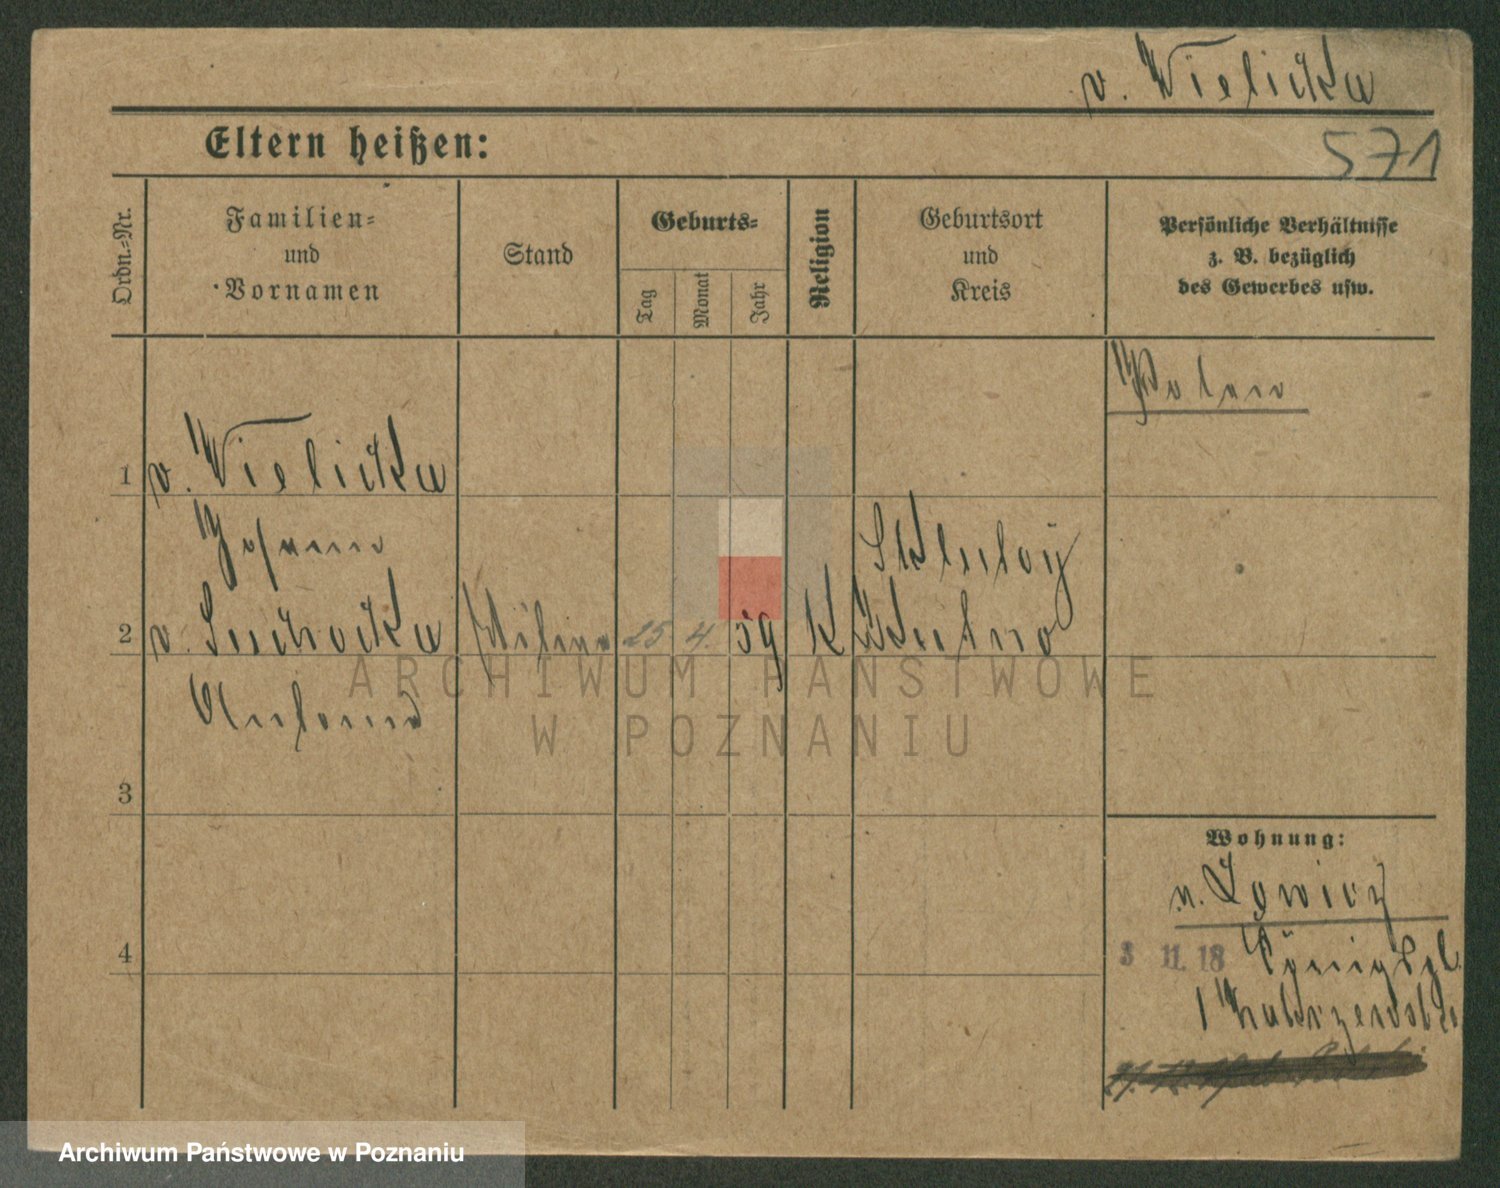 v. Wielicka
Eltern heißen:
571
Ordn.-Nr.
Familien-
und
Vornamen
Stand
Geburts-
Tag
Monat
Jahr
Religion
Geburtsort
und
Kreis
Persönliche Verhältnisse
z. B. bezüglich
des Gewerbes usw.
Polen
1 v. Wielicka
2 v. Suchocka 25 4. 59 K Kutno
3
Wohnung:
v. Lowicz
4
3 11. 18 Königspl.
1
ARCHIWUM PAŃSTWOWE
W POZNANIU
Archiwum Państwowe w Poznaniu